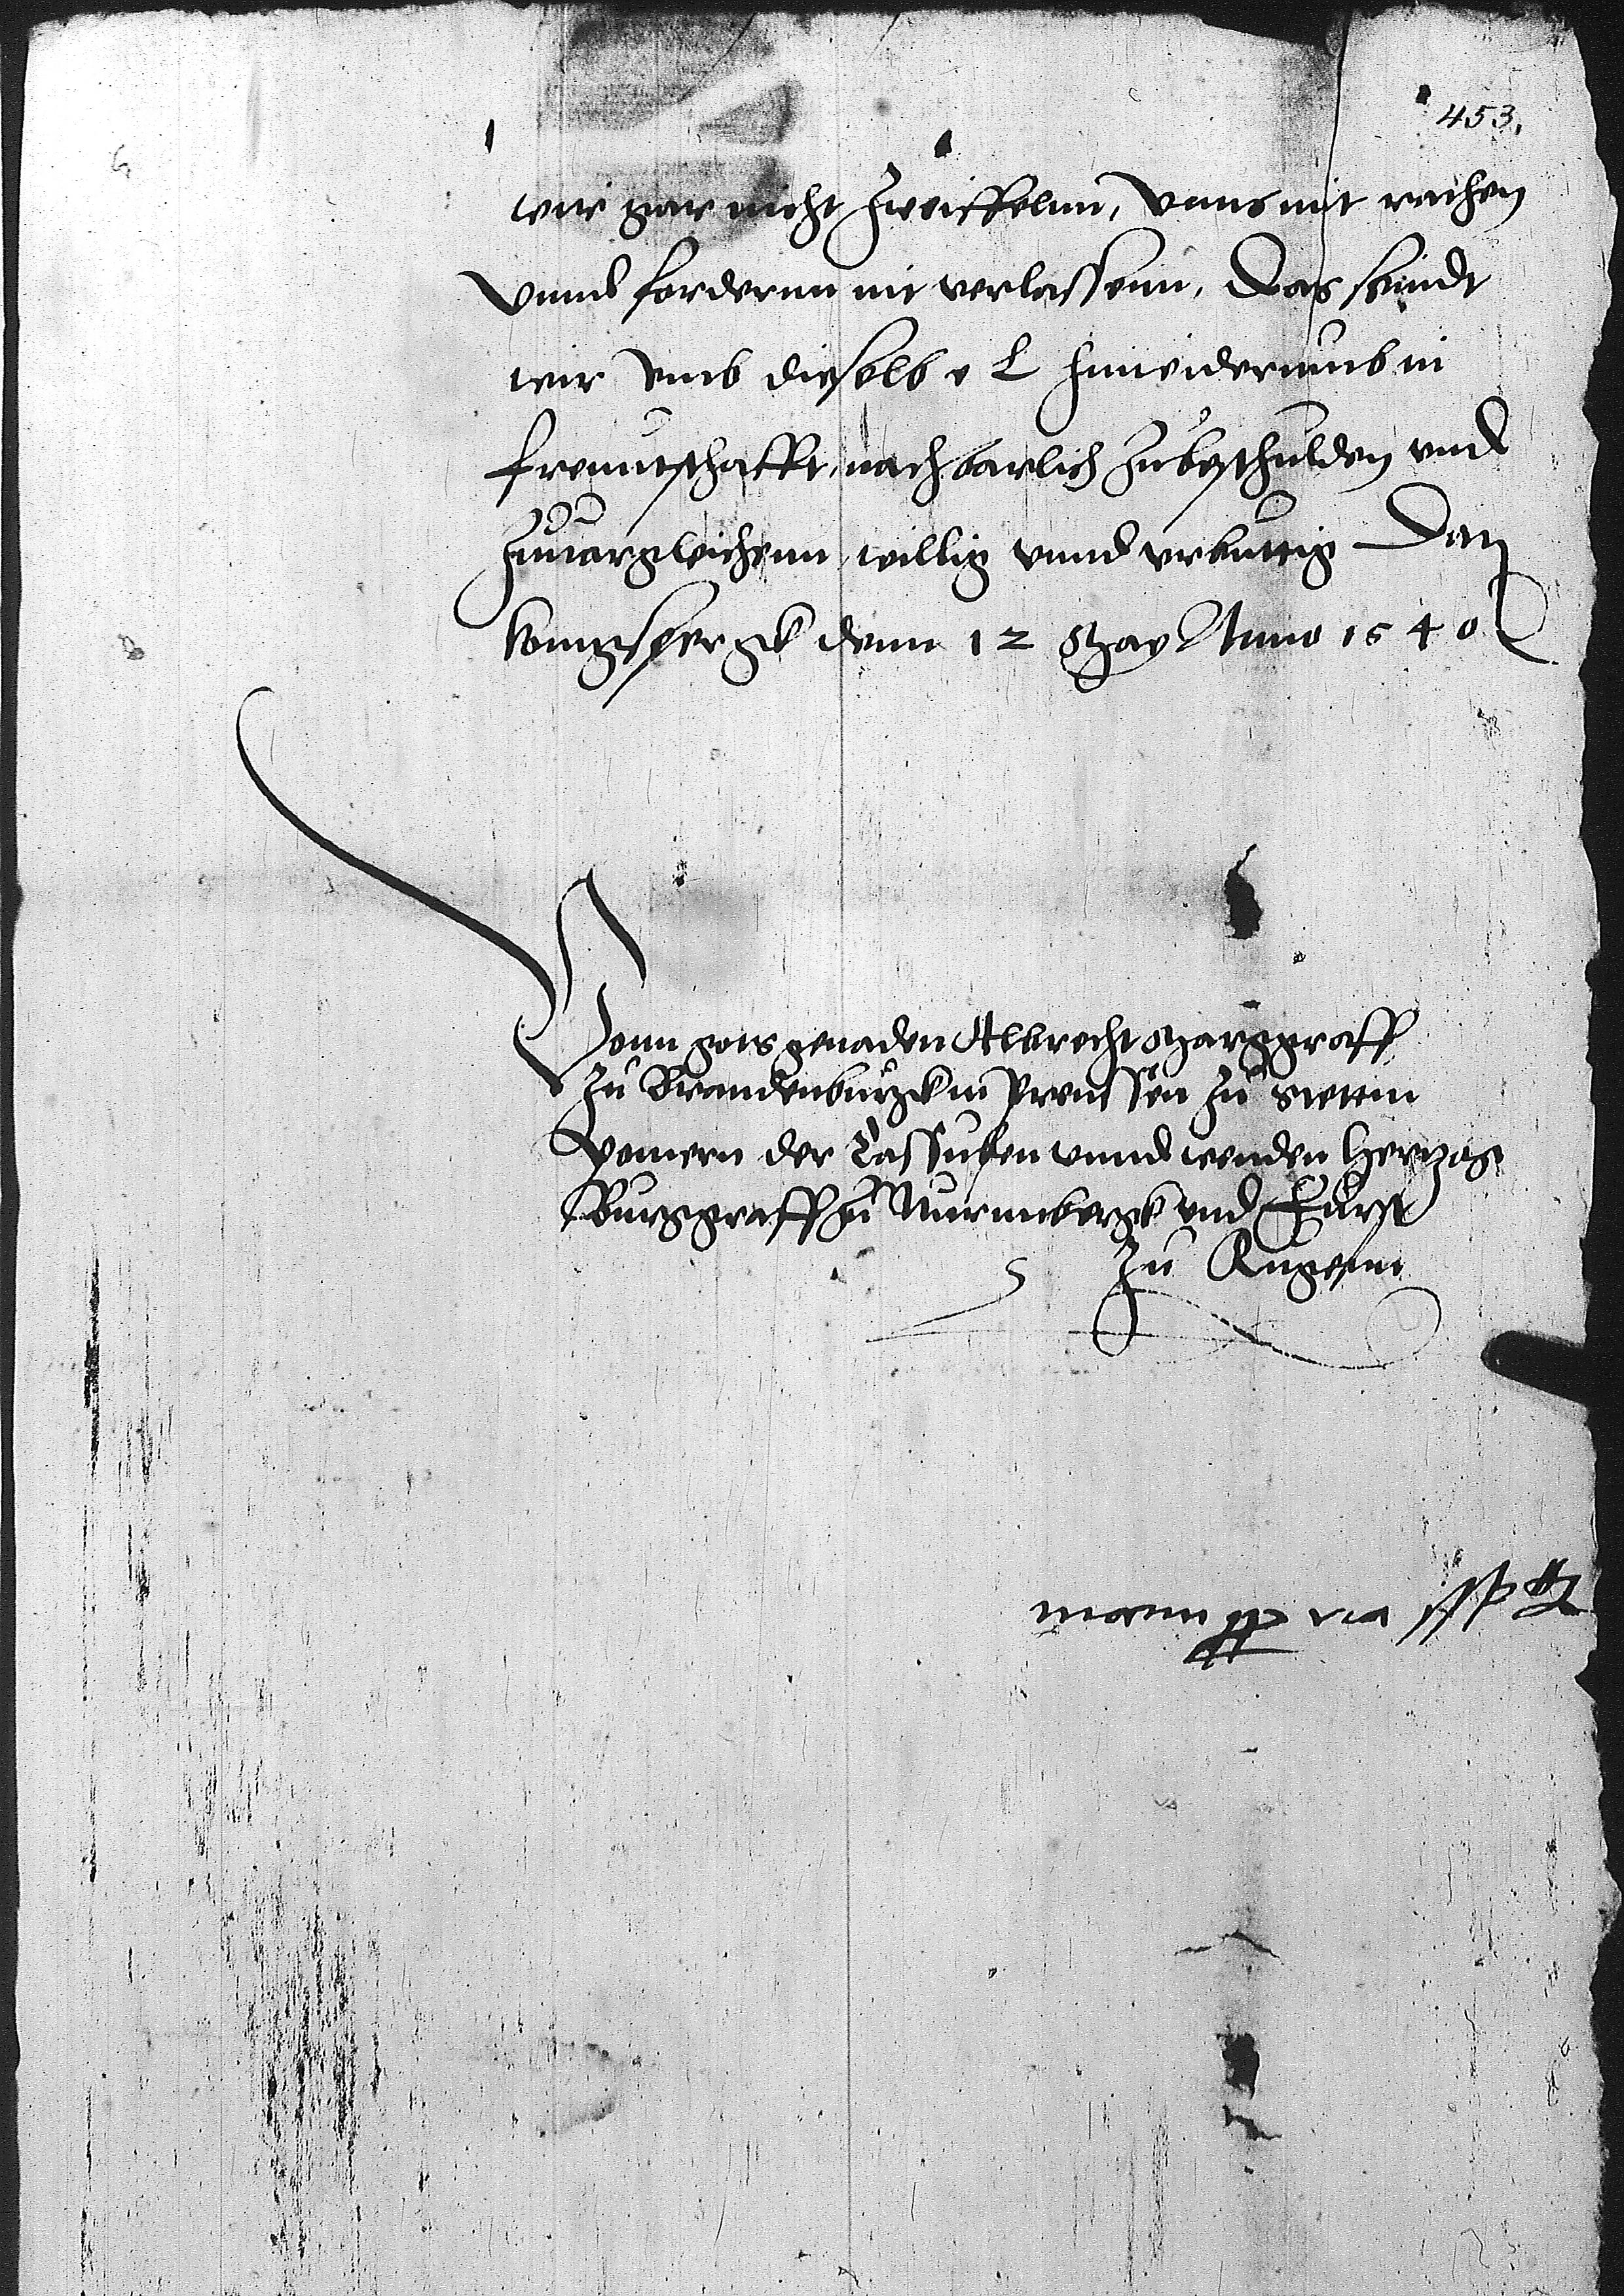 453.
wir gar nicht zweiffelnn, Vnns mit rathen
Vnnd fordernn nit verlassenn, Das seindt
wir vmb dieselb e L hinwiderumb in
freuntschafft, nachbarlich zubeschulden vnd
zuuorgleichenn, willig vnnd vrbuttig Dat
konigspergk denn 12 May Anno 1540
Vonn gots genaden Albrecht Marggraff
Zu Brandenburgk in Preussen zu Stettin
Pomern der Cassuben vnnd wenden Hertzog
Burggraff zu Nurmbergk vnd Furst
Zu Rugenn
manu pp